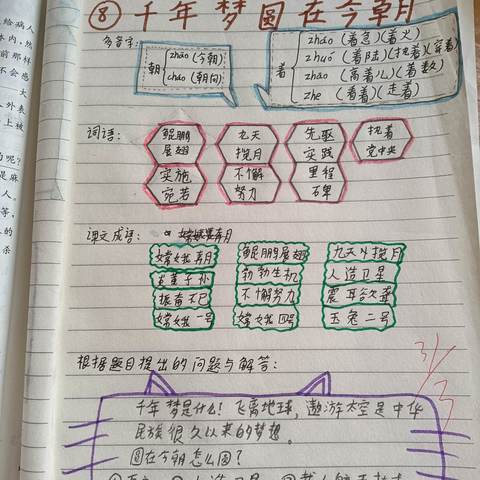 ⑧千年梦圆在今朝
多音字:
朝
zhāo (今朝)
cháo (朝向)
着
zháo (着急)(着火)
zhuó (着陆)(执着)(穿着)
zhāo (高着儿)(着数)
zhe (看着)(走着)
词语:
鲲鹏 九天 先驱 执着
展翅 揽月 实践 党中央
实施 不懈 里程
宛若 努力 碑
课文成语:
嫦娥奔月 鲲鹏展翅 九天揽月
勃勃生机 人造卫星
振奋不已 不懈努力 震耳欲聋
嫦娥一号 嫦娥四号 玉兔二号
根据题目提出的问题与解答:
千年梦是什么! 飞离地球, 遨游太空是中华
民族很久以来的梦想。
圆在今朝怎么圆?
给病人
体内,然
前那样
不会感
大
外表
上被
呢?
是麻
人。
等,
的
杀